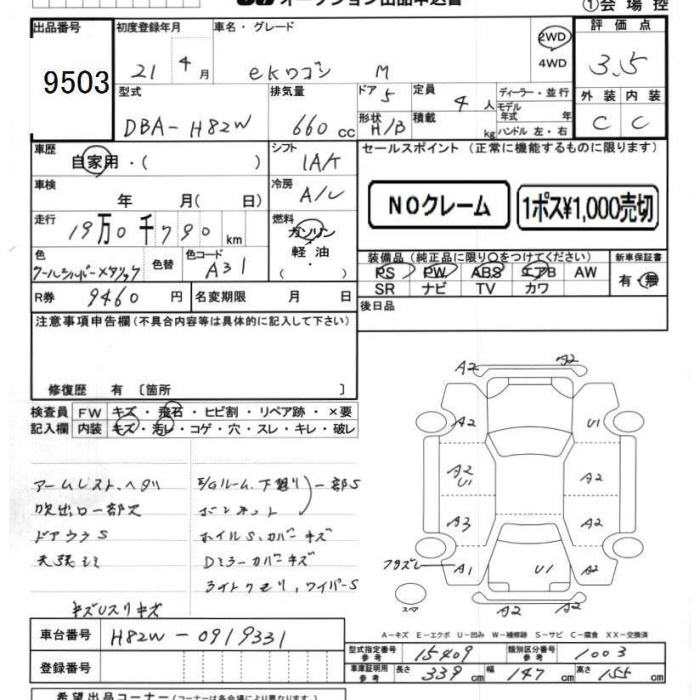 オークション出品申込書
①会場控
出品番号 9503
初度登録年月 21 4 月
車名・グレード ekワゴン M
2WD
4WD
評価点 3.5
型式 DBA-H82W
排気量 660 cc
ドア 5
形状 H/B
定員 4 人
積載 kg
ディーラー・並行
モデル年式 年
ハンドル 左・右
外装 内装
C C
車歴 自家用・( )
シフト IA/T
車検 年 月( 日)
冷房 A/C
走行 19万0千790 km
燃料 ガソリン・軽油・( )
色 クールシルバーメタリック
色替
色コード A31
R券 9460 円
名変期限 月 日
セールスポイント (正常に機能するものに限ります)
NOクレーム
1ポス¥1,000売切
装備品 (純正品に限り○をつけてください)
PS PW ABS エアB AW
SR ナビ TV カワ
新車保証書
有・無
後日品
注意事項申告欄 (不具合内容等は具体的に記入して下さい)
修復歴 有 〔箇所 〕
検査員記入欄
FW キズ・飛石・ヒビ割・リペア跡・×要
内装 キズ・汚レ・コゲ・穴・スレ・キレ・破レ
アームレスト、ヘタリ
吹出口一部欠
ドアウラS
天張シミ
E/Gルーム、下廻り
ボンネット
一部S
ホイルS、カバーキズ
Dミラーカバーキズ
ライトクモリ、ワイパーS
キズUスリキズ
A2 A2
A2 U1
A2 U1 A2
A3 A2
フタズレ A1 U1 A2
スペア
A2 A2
A-キズ E-エクボ U-凹み W-補修跡 S-サビ C-腐食 XX-交換済
車台番号 H82W-0919331
登録番号
型式指定番号 参考 15409
類別区分番号 参考 1003
車庫証明用 参考 長さ 339 cm 幅 147 cm 高さ 155 cm
希望出品コーナー (コーナーは各会場により異なります)